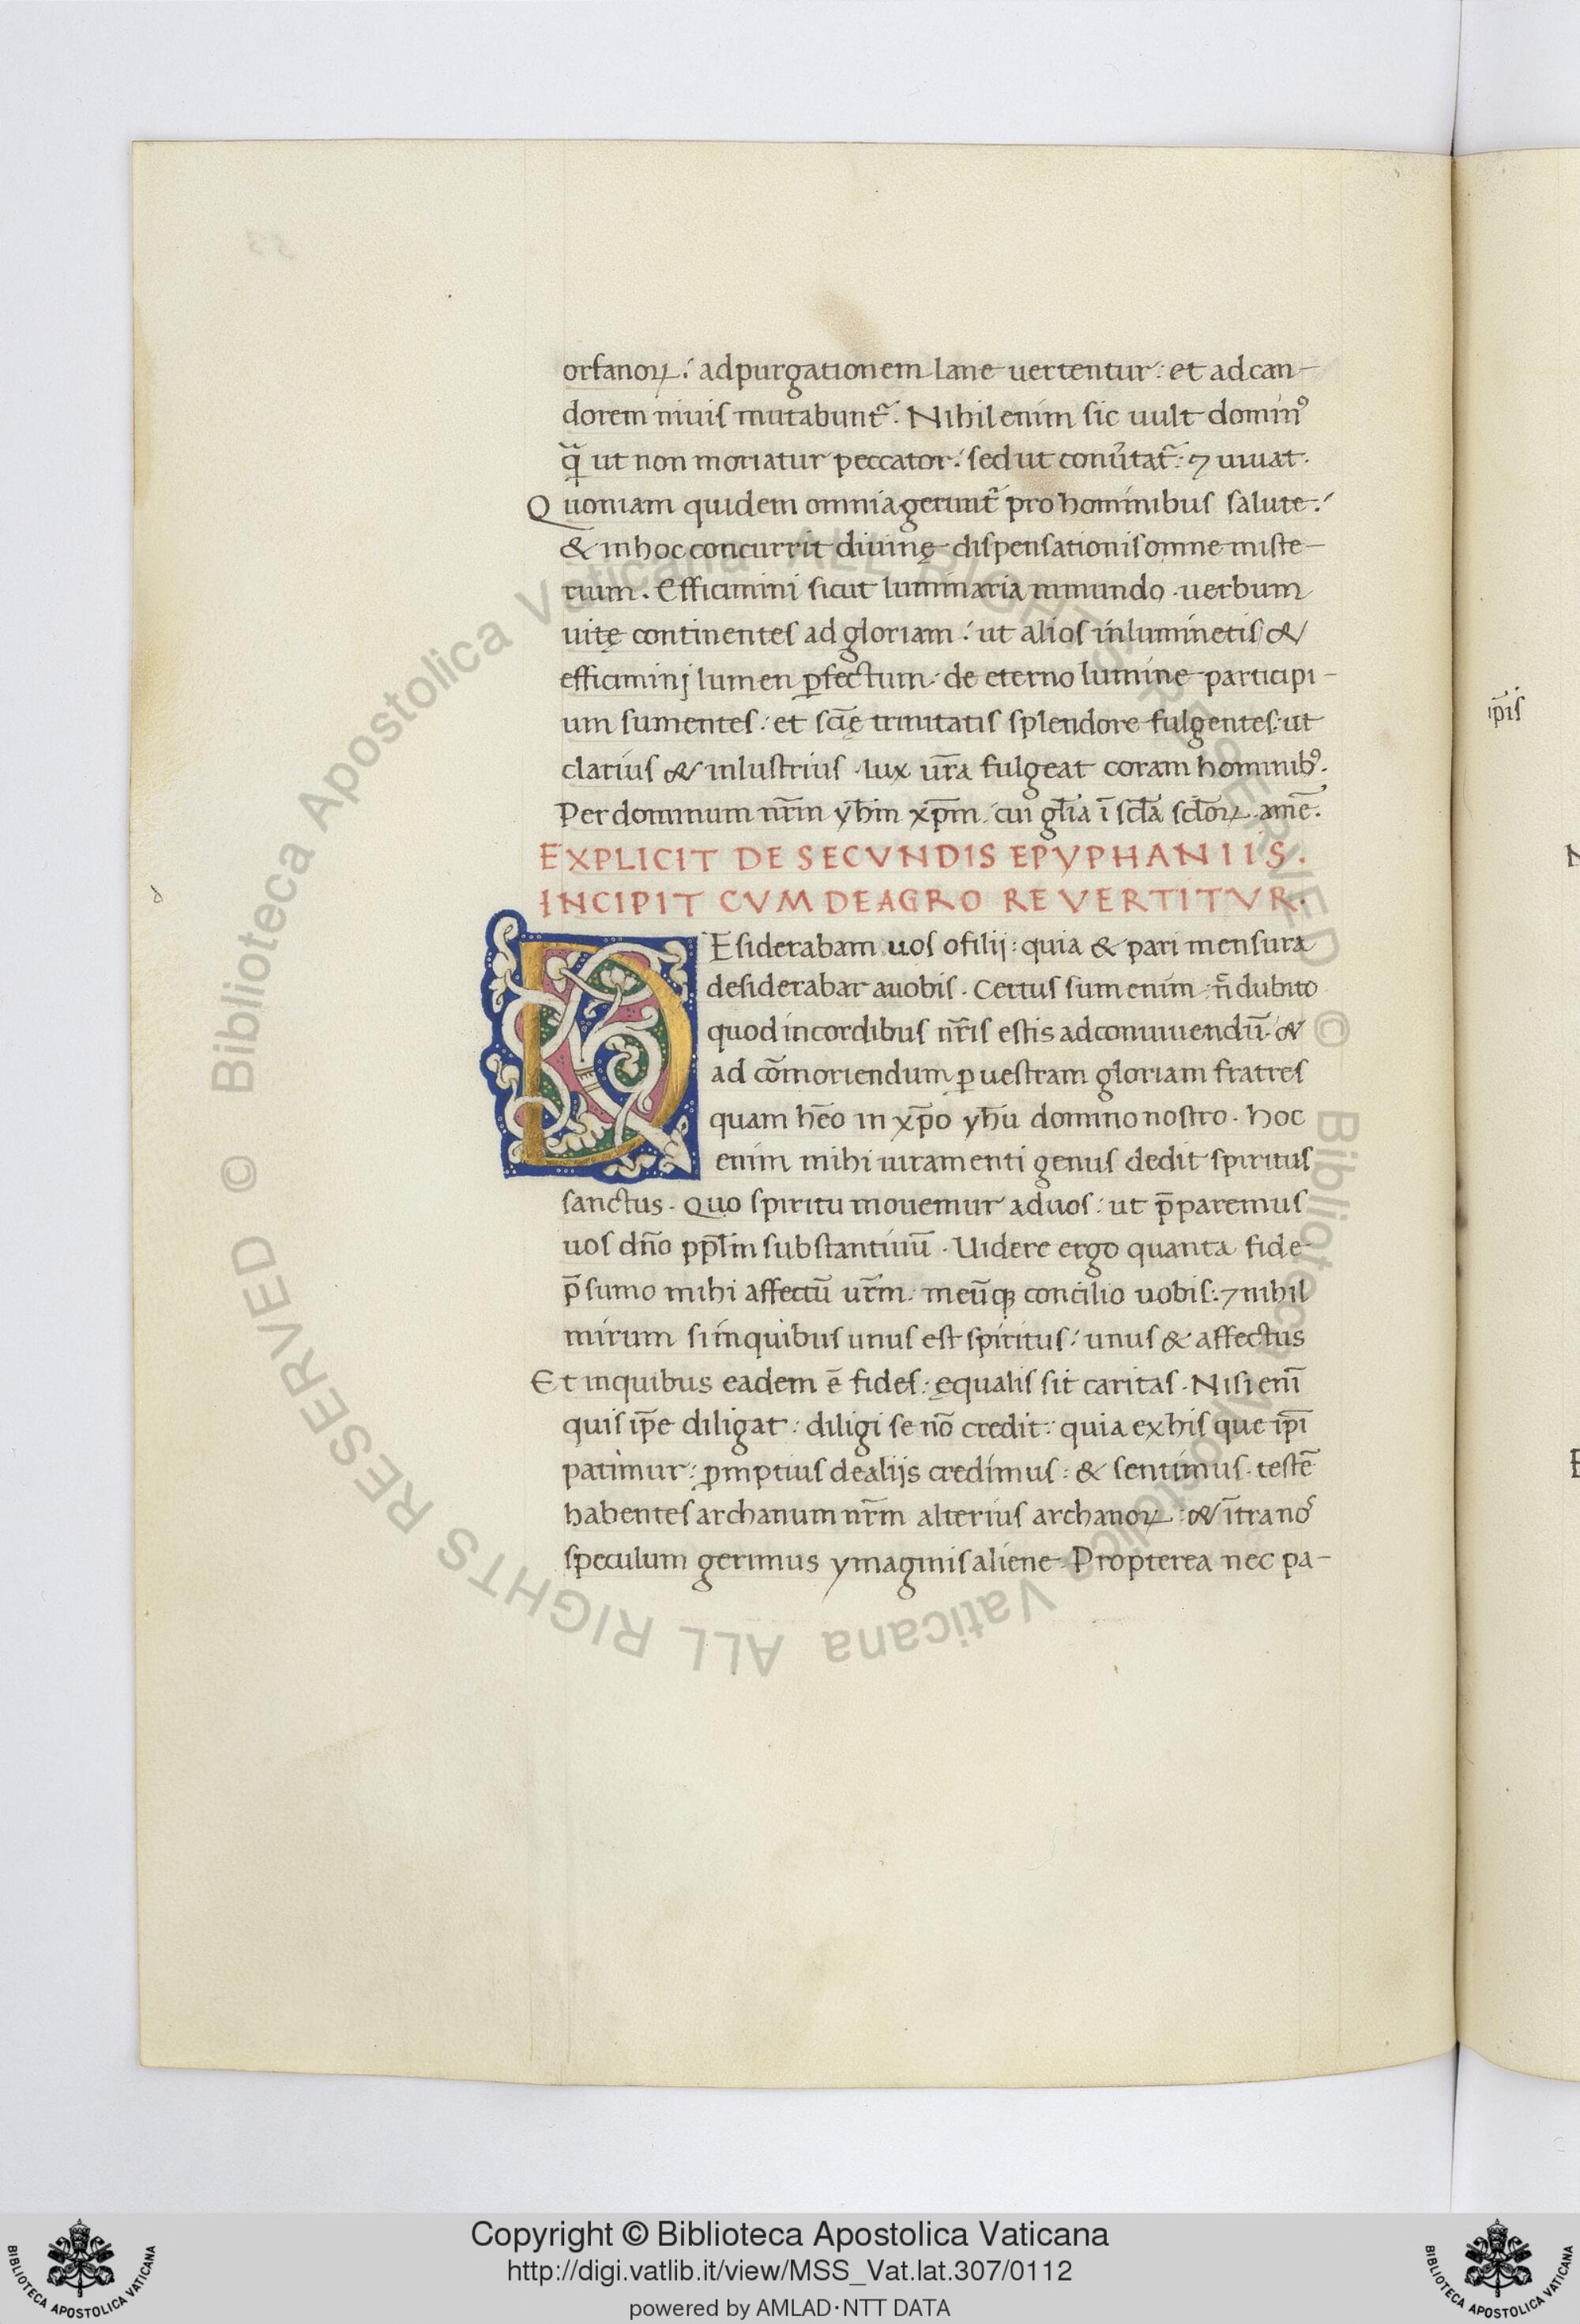 orfanoꝝ: ad purgationem lane uertentur: et ad can-
dorem niuis mutabunt᷑. Nihil enim sic uult domin⁹
q̃ ut non moriatur peccator: sed ut conũtat᷑: ⁊ uiuat.
Quoniam quidem omnia gerunt᷑ pro hominibus salute:
& in hoc concurrit diuinę dispensationis omne miste-
rium. Efficimini sicut luminaria in mundo. uerbum
uitę continentes ad gloriam: ut alios inluminetis &
efficiminj lumen ꝑfectum. de eterno lumine participi-
um sumentes: et sc̄ę trinitatis splendore fulgentes. ut
clarius & inlustrius. lux ur̄a fulgeat coram hominib⁹.
Per dominum nr̄m yh̄m xp̄m. cui gl̄ia ī scl̄a scl̄oꝝ. amē.
EXPLICIT DE SECVNDIS EPYPHANIIS.
INCIPIT CVM DE AGRO REVERTITVR.
DEsiderabam uos o filij: quia & pari mensura
desiderabar a uobis. Certus sum enim. n̄ dubito
quod in cordibus nr̄is estis ad conuiuendū. &
ad cōmoriendum ꝑ uestram gloriam fratres
quam hēo in xp̄o yh̄u domino nostro. hoc
enim mihi iuramenti genus dedit spiritus
sanctus. Quo spiritu mouemur ad uos: ut p̄paremus
uos dn̄o ppl̄m substantiuū. Uidere ergo quanta fide
p̄sumo mihi affectū ur̄m. meūq; concilio uobis: ⁊ nihil
mirum si in quibus unus est spiritus: unus & affectus
Et in quibus eadem ē fides: ęqualis sit caritas. Nisi enī
quis ip̄e diligat: diligi se nō credit: quia ex his que ip̄i
patimur: ꝓmptius de alijs credimus: & sentimus. testē
habentes archanum nr̄m alterius archanoꝝ: & ītra nos
speculum gerimus ymaginis aliene. Propterea nec pa-
ip̄is
Copyright © Biblioteca Apostolica Vaticana
http://digi.vatlib.it/view/MSS_Vat.lat.307/0112
powered by AMLAD·NTT DATA
BIBLIOTECA APOSTOLICA VATICANA
BIBLIOTECA APOSTOLICA VATICANA
© Biblioteca Apostolica Vaticana ALL RIGHTS RESERVED © Biblioteca Apostolica Vaticana ALL RIGHTS RESERVED